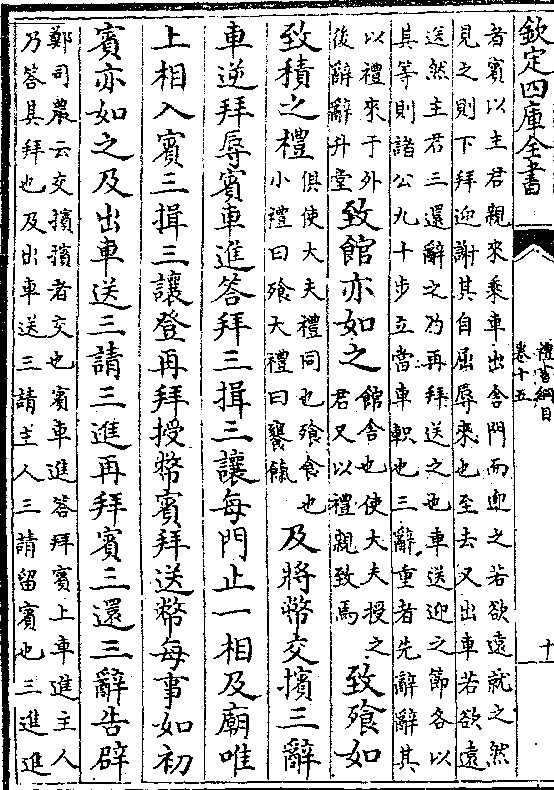 欽定四庫全書
禮書綱目
卷十五
十
者賓以主君親來乘車出舍門而迎之若欲遠就之然
見之則下拜迎謝其自屈辱來也至去又出車若欲遠
送然主君三還辭之乃再拜送之也車送迎之節各以
其等則諸公九十步立當車軹也三辭重者先辭辭其
以禮來于外
後辭辭升堂
致館亦如之
館舍也使大夫授之
君又以禮親致焉
致飱如
致積之禮
俱使大夫禮同也飱食也
小禮曰飱大禮曰饔餼
及將幣交擯三辭
車逆拜辱賓車進答拜三揖三讓每門止一相及廟唯
上相入賓三揖三讓登再拜授幣賓拜送幣每事如初
賓亦如之及出車送三請三進再拜賓三還三辭告辟
鄭司農云交擯擯者交也賓車進答拜賓上車進主人
乃答其拜也及出車送三請主人三請留賓也三進進